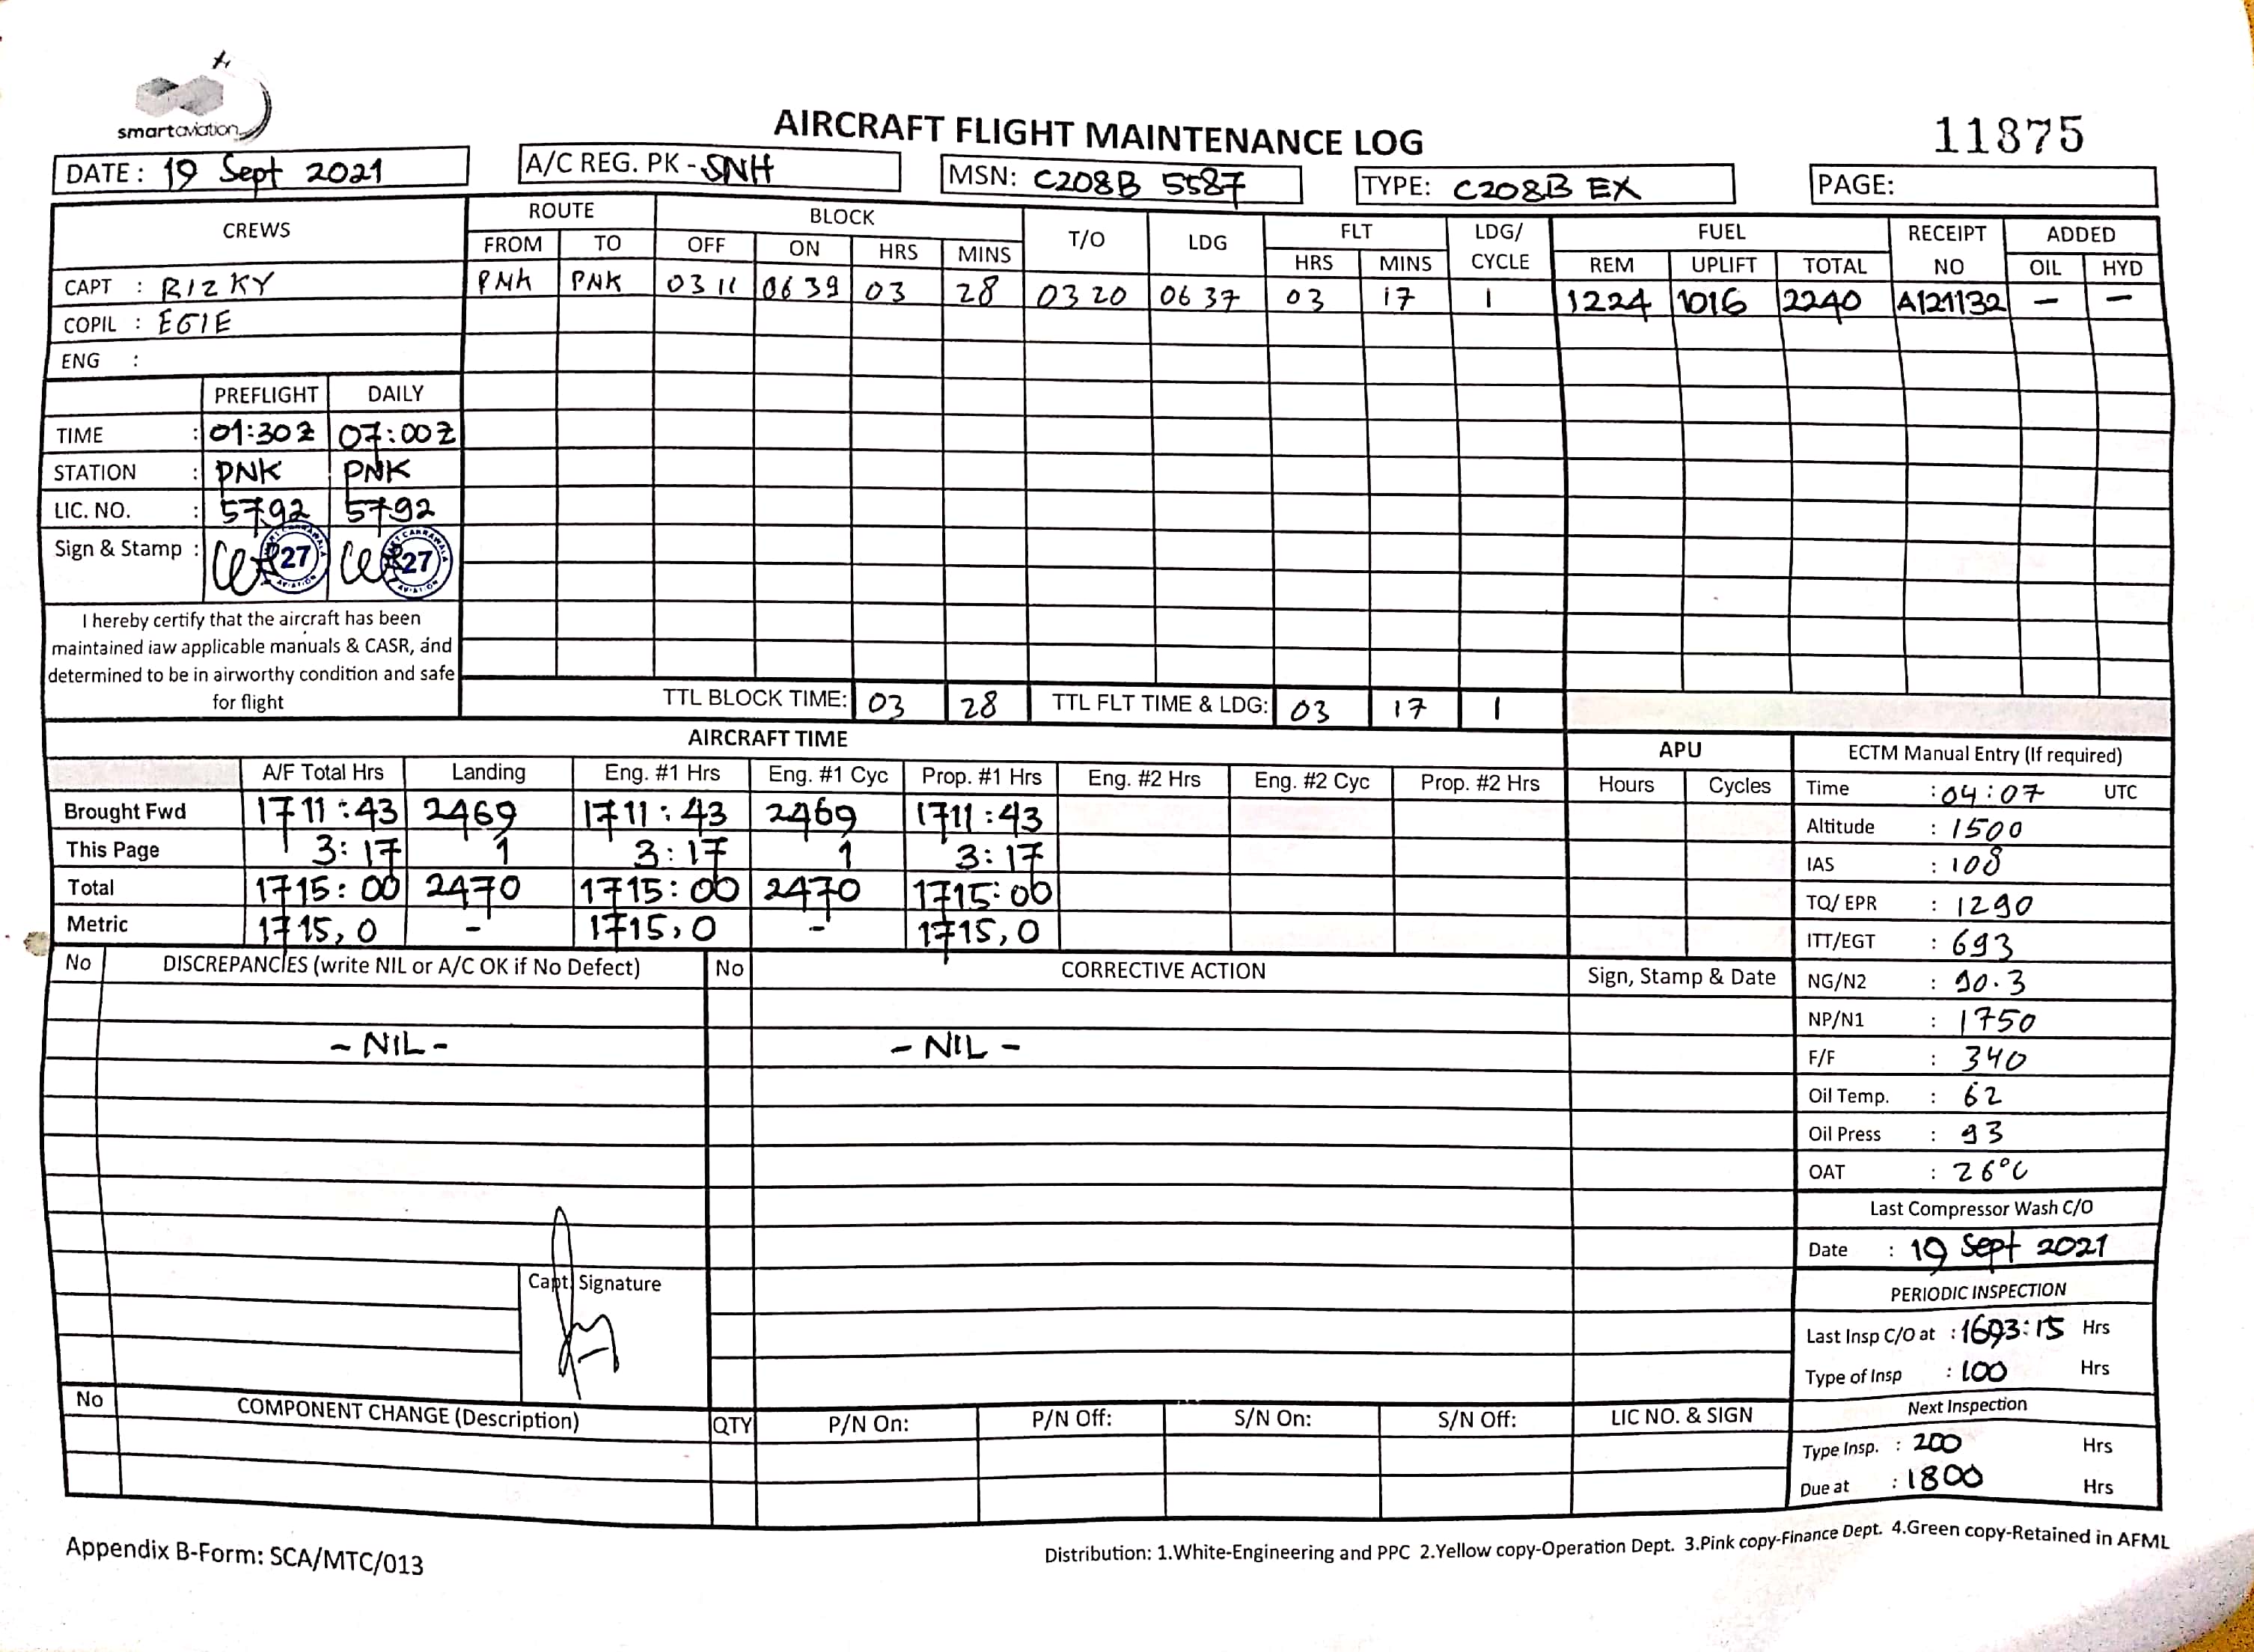 smartaviation
AIRCRAFT FLIGHT MAINTENANCE LOG
11875
DATE : 19 Sept 2021
A/C REG. PK - SNH
MSN: C208B 5587
TYPE: C208B EX
PAGE:
CREWS ROUTE BLOCK T/O LDG FLT LDG/ CYCLE FUEL RECEIPT NO ADDED
FROM TO OFF ON HRS MINS HRS MINS REM UPLIFT TOTAL OIL HYD
CAPT : RIZKY
PNK PNK 03 11 06 39 03 28 03 20 06 37 03 17 1 1224 1016 2240 A121132 – –
COPIL : EGIE
ENG :
PREFLIGHT DAILY
TIME : 01:30Z 07:00Z
STATION : PNK PNK
LIC. NO. : 5792 5792
Sign & Stamp : 27 27
I hereby certify that the aircraft has been
maintained iaw applicable manuals & CASR, and
determined to be in airworthy condition and safe
for flight
TTL BLOCK TIME: 03 28 TTL FLT TIME & LDG: 03 17 1
AIRCRAFT TIME
A/F Total Hrs Landing Eng. #1 Hrs Eng. #1 Cyc Prop. #1 Hrs Eng. #2 Hrs Eng. #2 Cyc Prop. #2 Hrs
Brought Fwd 1711:43 2469 1711:43 2469 1711:43
This Page 3:17 1 3:17 1 3:17
Total 1715:00 2470 1715:00 2470 1715:00
Metric 1715,0 - 1715,0 - 1715,0
APU
Hours Cycles
ECTM Manual Entry (If required)
Time : 04:07 UTC
Altitude : 1500
IAS : 108
TQ/ EPR : 1290
ITT/EGT : 693
NG/N2 : 90.3
NP/N1 : 1750
F/F : 340
Oil Temp. : 62
Oil Press : 93
OAT : 26°C
Last Compressor Wash C/O
Date : 19 Sept 2021
PERIODIC INSPECTION
Last Insp C/O at : 1693:15 Hrs
Type of Insp : 100 Hrs
Next Inspection
Type Insp. : 200 Hrs
Due at : 1800 Hrs
No DISCREPANCIES (write NIL or A/C OK if No Defect) No CORRECTIVE ACTION Sign, Stamp & Date
- NIL - - NIL -
Capt. Signature
No COMPONENT CHANGE (Description) QTY P/N On: P/N Off: S/N On: S/N Off: LIC NO. & SIGN
Appendix B-Form: SCA/MTC/013
Distribution: 1.White-Engineering and PPC 2.Yellow copy-Operation Dept. 3.Pink copy-Finance Dept. 4.Green copy-Retained in AFML